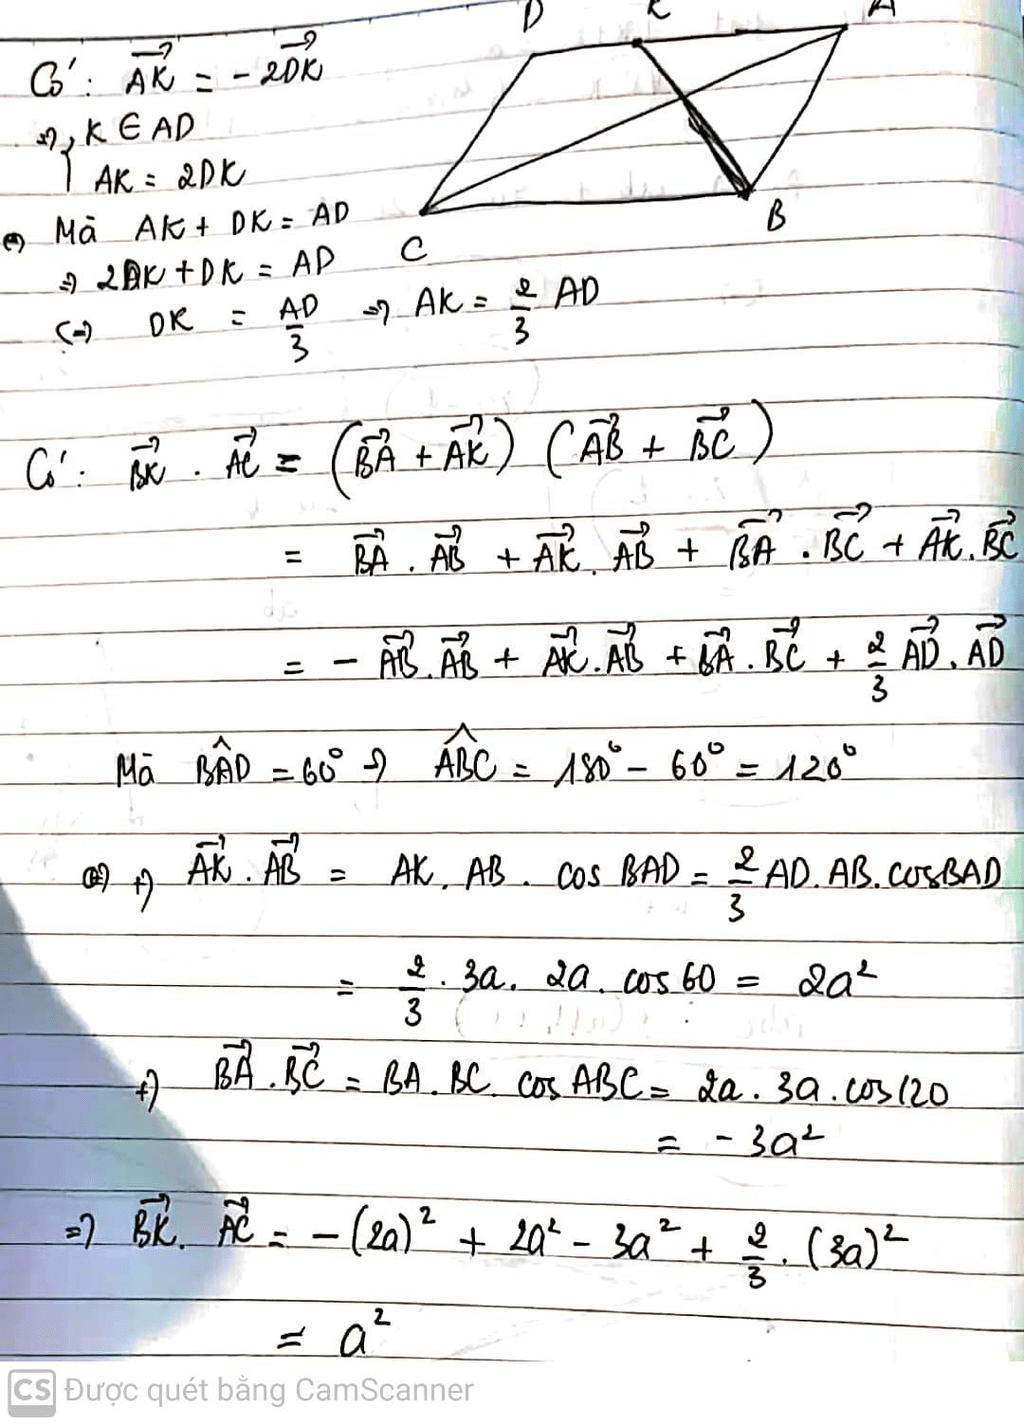 D K A
Có: $\overrightarrow{AK} = -2\overrightarrow{DK}$
⇒ { K ∈ AD
AK = 2DK
Mà AK + DK = AD
⇒ 2DK + DK = AD
C B
(=) DK = $\frac{AD}{3}$ ⇒ AK = $\frac{2}{3}$ AD
Có: $\overrightarrow{BK} . \overrightarrow{AC} = (\overrightarrow{BA} + \overrightarrow{AK}) (\overrightarrow{AB} + \overrightarrow{BC})$
$= \overrightarrow{BA} . \overrightarrow{AB} + \overrightarrow{AK} . \overrightarrow{AB} + \overrightarrow{BA} . \overrightarrow{BC} + \overrightarrow{AK} . \overrightarrow{BC}$
$= - \overrightarrow{AB} . \overrightarrow{AB} + \overrightarrow{AK} . \overrightarrow{AB} + \overrightarrow{BA} . \overrightarrow{BC} + \frac{2}{3} \overrightarrow{AD} . \overrightarrow{AD}$
Mà $\widehat{BAD} = 60^0$ ⇒ $\widehat{ABC} = 180^0 - 60^0 = 120^0$
+) $\overrightarrow{AK} . \overrightarrow{AB}$ = AK . AB . cos BAD = $\frac{2}{3}$ AD. AB. cos BAD
= $\frac{2}{3}$ . 3a. 2a. cos 60 = 2a²
+) $\overrightarrow{BA} . \overrightarrow{BC}$ = BA . BC. cos ABC = 2a . 3a . cos 120
= - 3a²
⇒ $\overrightarrow{BK} . \overrightarrow{AC}$ = - (2a)² + 2a² - 3a² + $\frac{2}{3}$ . (3a)²
= a²
CS Được quét bằng CamScanner